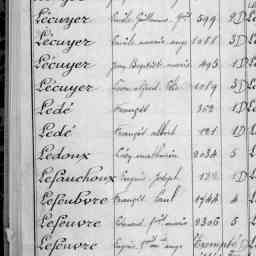 Lécuyer Emile Guillaume 599 2D
Lécuyer Emile marie ange 1088 3D
Lécuyer Jean Baptiste marie 495 1D
Lécuyer 1019 3D
Ledé François 362 1D
Ledé François albert 121 1D
Ledoux mathurin 2034 5
Lefauchoux Eugène Joseph 122 1D
Lefeubvre François Paul 1744 4
Lefeuvre Edouard marie 2306 5
Lefeuvre Eugène ange Exempté